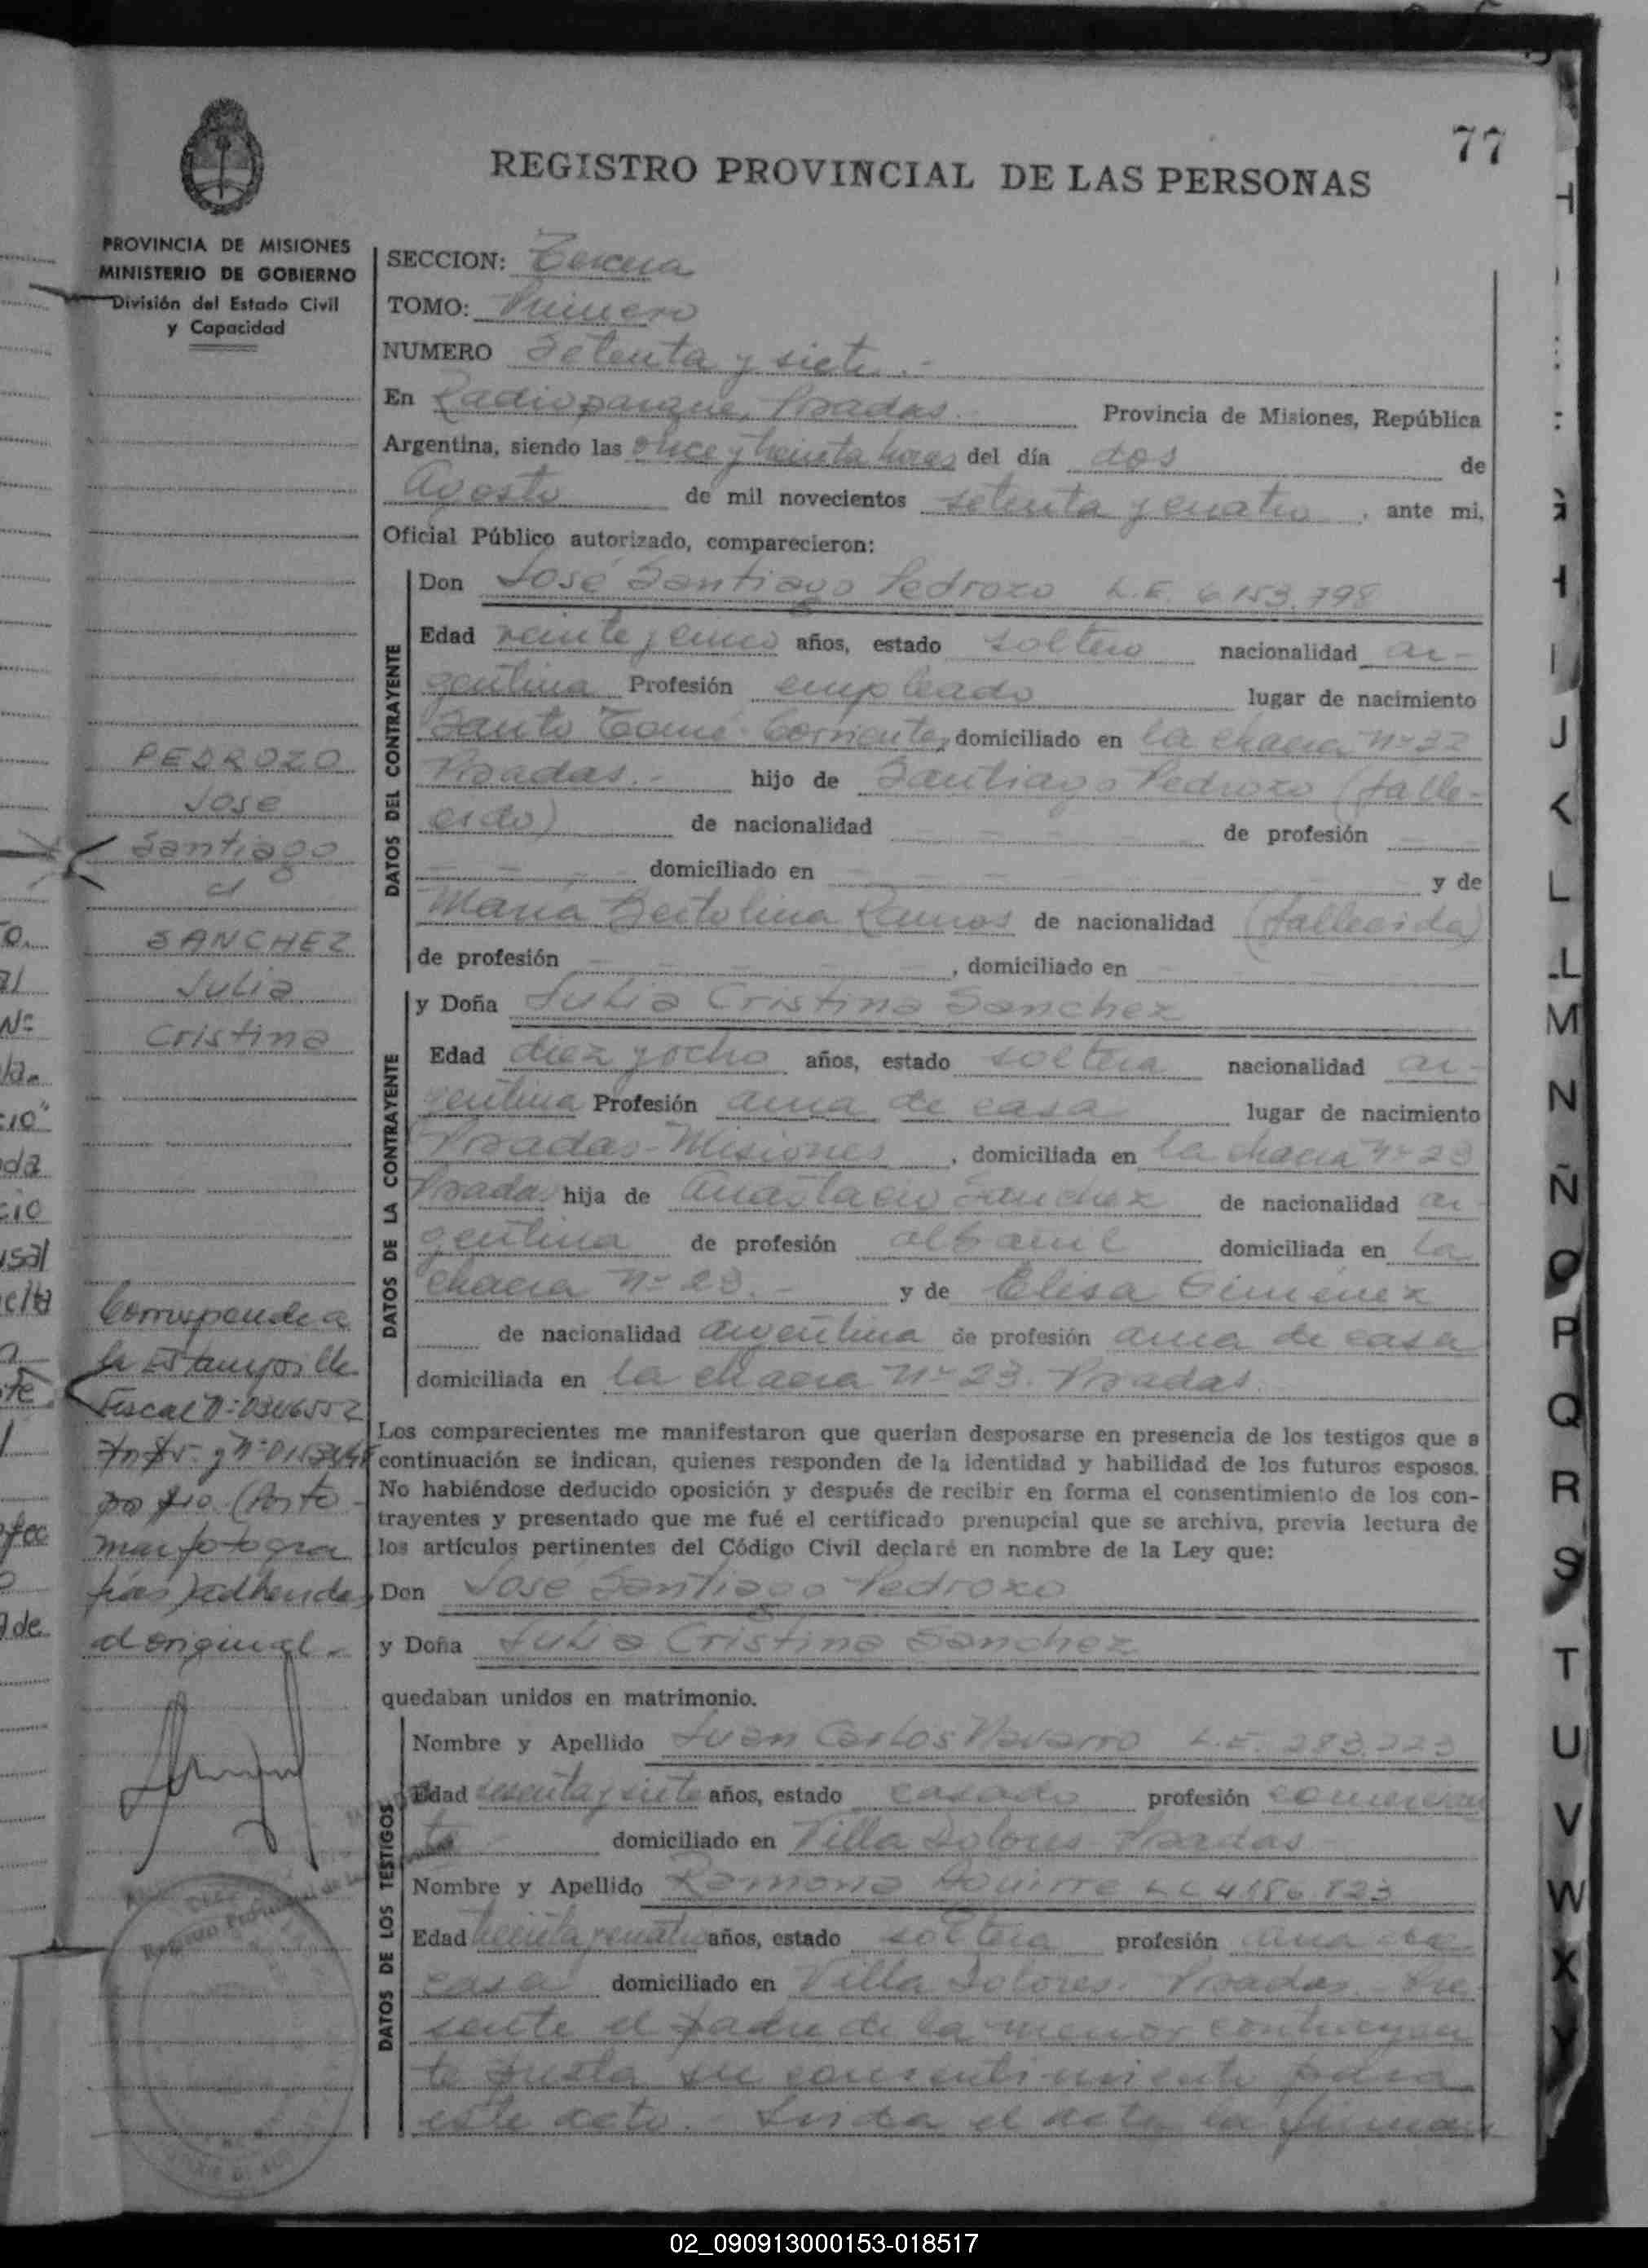 77
REGISTRO PROVINCIAL DE LAS PERSONAS
PROVINCIA DE MISIONES
MINISTERIO DE GOBIERNO
División del Estado Civil
y Capacidad
SECCION: Tercera
TOMO: Primero
NUMERO Setenta y siete.-
En Radioparque, Posadas. Provincia de Misiones, República
Argentina, siendo las once y treinta horas del día dos de
Agosto de mil novecientos setenta y cuatro, ante mi,
Oficial Público autorizado, comparecieron:
DATOS DEL CONTRAYENTE
Don José Santiago Pedrozo L.E. 6.153.798
Edad veinte y cinco años, estado soltero nacionalidad ar-
gentina Profesión empleado lugar de nacimiento
Santo Tomé-Corrientes, domiciliado en la chacra Nº
Posadas.- hijo de Santiago Pedrozo (falle-
cido) de nacionalidad de profesión
domiciliado en y de
María Bertolina Ramos de nacionalidad (fallecida)
de profesión , domiciliado en
PEDROZO
José
Santiago
c/
SANCHEZ
Julia
Cristina
DATOS DE LA CONTRAYENTE
y Doña Julia Cristina Sanchez
Edad diez y ocho años, estado soltera nacionalidad ar-
gentina Profesión ama de casa lugar de nacimiento
Posadas-Misiones, domiciliada en la chacra Nº 23
Posadas hija de Anastacio Sanchez de nacionalidad ar-
gentina de profesión albañil domiciliada en la
chacra Nº 23.- y de Elisa Gimenez
de nacionalidad argentina de profesión ama de casa
domiciliada en la chacra Nº 23. Posadas.
Corresponde a
la Estampilla
Fiscal Nº
(Porto
man fotogra
fias) adheridas
al original.-
Los comparecientes me manifestaron que querían desposarse en presencia de los testigos que a
continuación se indican, quienes responden de la identidad y habilidad de los futuros esposos.
No habiéndose deducido oposición y después de recibir en forma el consentimiento de los con-
trayentes y presentado que me fué el certificado prenupcial que se archiva, previa lectura de
los artículos pertinentes del Código Civil declaré en nombre de la Ley que:
Don José Santiago Pedrozo
y Doña Julia Cristina Sanchez
quedaban unidos en matrimonio.
DATOS DE LOS TESTIGOS
Nombre y Apellido Juan Carlos Navarro L.E. 283.223
Edad sesenta y siete años, estado casado profesión comercian
te domiciliado en Villa Dolores-Posadas
Nombre y Apellido Ramona Aguirre L.C. 823
Edad treinta y cuatro años, estado soltera profesión ama de
casa domiciliado en Villa Dolores. Posadas. Pre
sente el padre de la menor contrayen
te presta su consentimiento para
este acto.- Leida el acta la firman
H
I
J
K
L
LL
M
N
Ñ
O
P
Q
R
S
T
U
V
W
X
Y
02_090913000153-018517